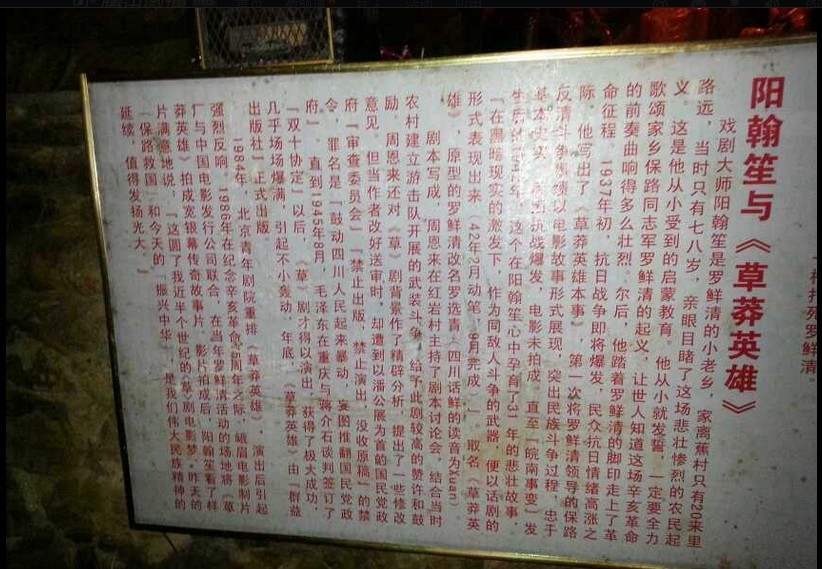 棍打死罗鲜清。
阳翰笙与《草莽英雄》
戏剧大师阳翰笙是罗鲜清的小老乡，家离蕉村只有20来里
路远，当时只有七八岁，亲眼目睹了这场悲壮惨烈的农民起
义。这是他从小受到的启蒙教育，他从小就发誓，一定要全力
歌颂家乡保路同志军罗鲜清的起义，让世人知道这场辛亥革命
的前奏曲响得多么壮烈。尔后，他踏着罗鲜清的脚印走上了革
命征程。1937年初，抗日战争即将爆发，民众抗日情绪高涨之
际，他写出了《草莽英雄本事》，第一次将罗鲜清领导的保路
反清斗争情绩以电影故事形式展现，突出民族斗争过程，忠于
基本史实。后因抗战爆发，电影未拍成。直至"皖南事变"发
生后的1942年，这个在阳翰笙心中孕育了31年的悲壮故事，
"在黑暗现实的激发下，作为同敌人斗争的武器，便以话剧的
形式表现出来（42年2月动笔，9月完成）"，取名《草莽英
雄》，原型的罗鲜清改名罗选青（四川话鲜的读音为Xuan）。
剧本写成，周恩来在红岩村主持了剧本讨论会，结合当时
农村建立游击队开展的武装斗争，给了此剧较高的赞许和鼓
励。周恩来还对《草》剧背景作了精辟分析，提出了一些修改
意见。但当作者改好送审时，却遭到以潘公展为首的国民党政
府"审查委员会"："禁止出版，禁止演出，没收原稿"的禁
令，罪名是"鼓动四川人民起来暴动，妄图推翻国民党政
府"。直到1945年8月，毛泽东在重庆与蒋介石谈判签订了
"双十协定"以后，《草》剧才得以演出，获得了极大成功，
几乎场场爆满，引起不小轰动。年底，《草莽英雄》由"群益
出版社"正式出版。
1984年，北京青年剧院重排《草莽英雄》，演出后引起
强烈反响。1986年在纪念辛亥革命75周年之际，峨眉电影制片
厂与中国电影发行公司联合，在当年罗鲜清活动的场地将《草
莽英雄》拍成宽银幕传奇故事片，影片拍成后，阳翰笙看了样
片满意地说："这圆了我近半个世纪的《草》剧电影梦。昨天的
'保路救国'和今天的'振兴中华'，是我们伟大民族精神的
延续，值得发扬光大。"